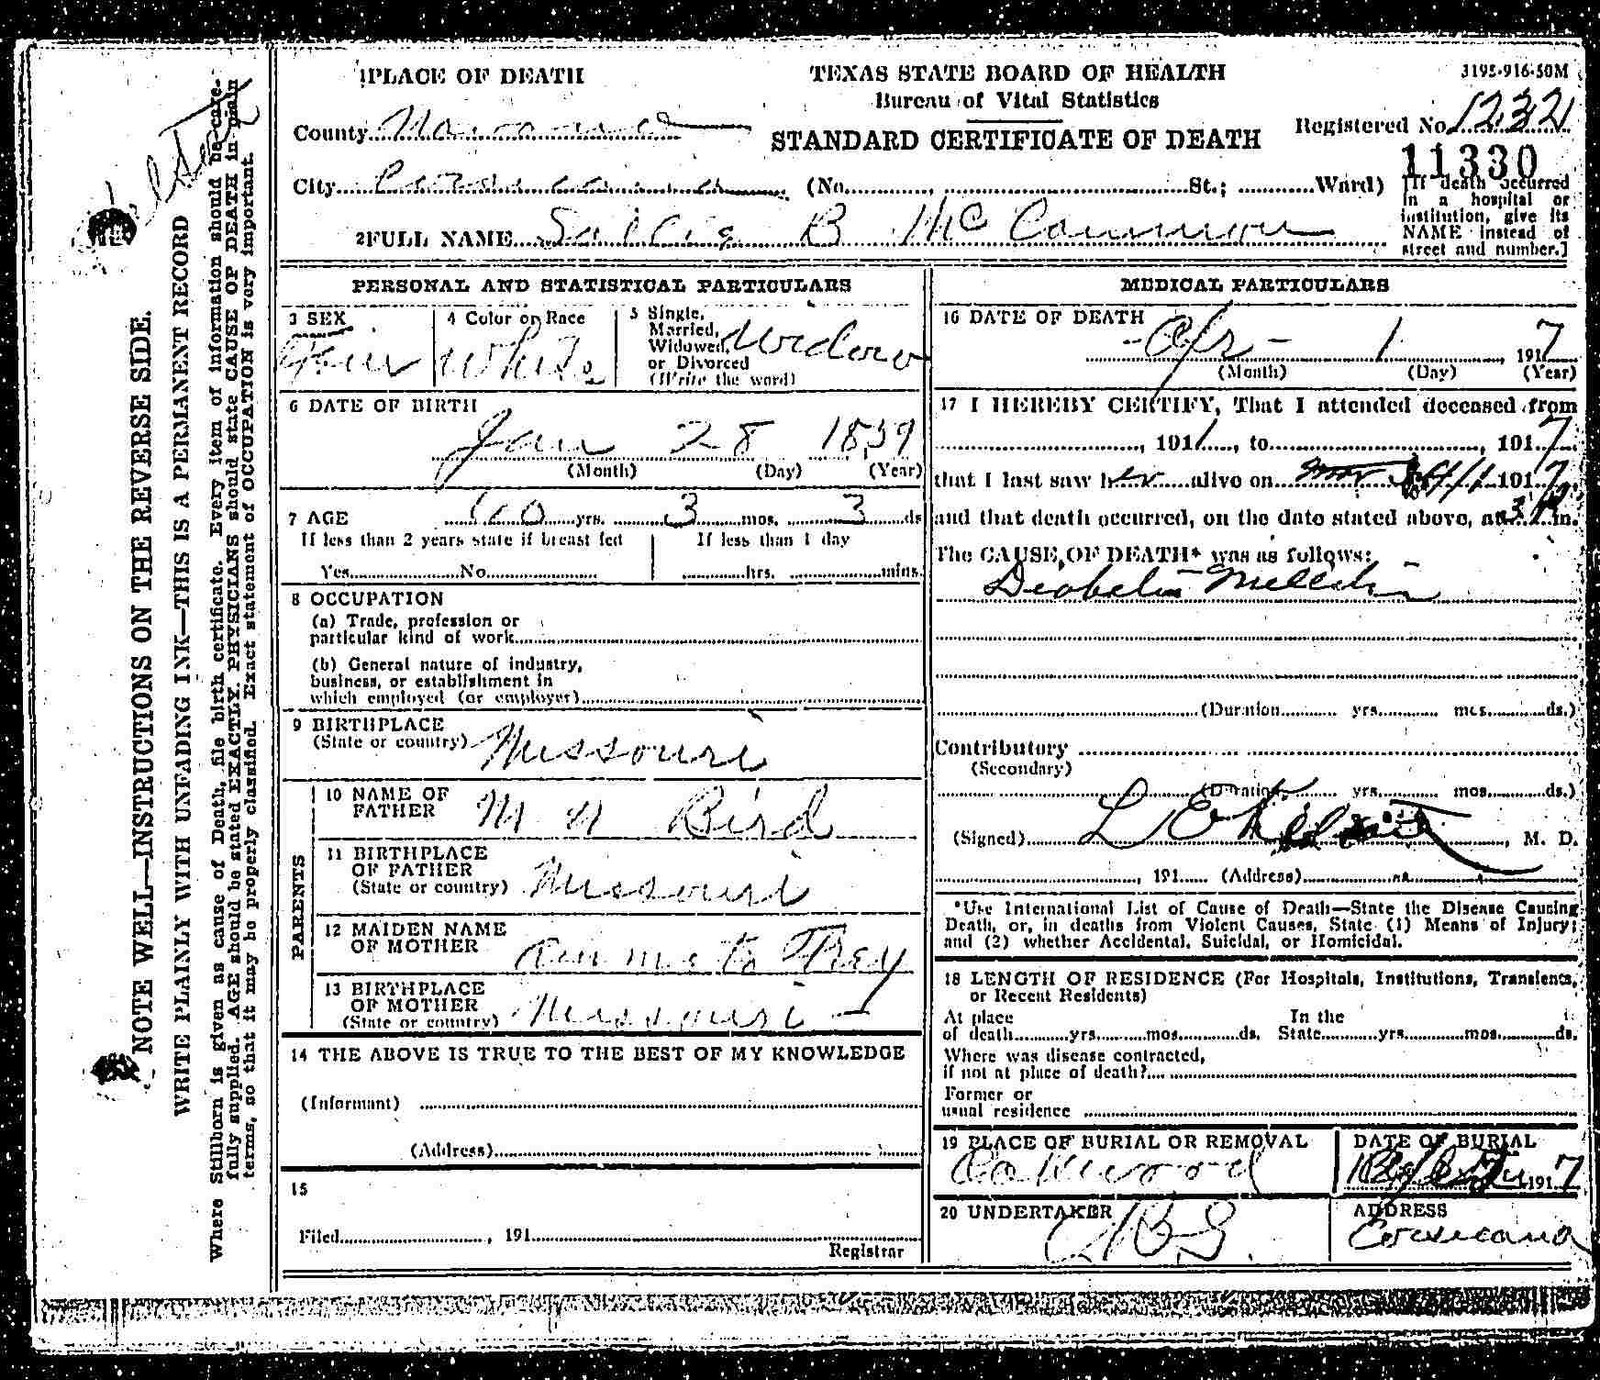 1 PLACE OF DEATH
TEXAS STATE BOARD OF HEALTH
Bureau of Vital Statistics
STANDARD CERTIFICATE OF DEATH
3195-916-50M
Registered No. 1232
11330
County Navarro
City Corsicana (No. , St.; Ward)
[If death occurred
in a hospital or
institution, give its
NAME instead of
street and number.]
2 FULL NAME Sallie B McCammon
PERSONAL AND STATISTICAL PARTICULARS
3 SEX
Fem
4 Color or Race
White
5 Single,
Married,
Widowed,
or Divorced
(Write the word)
Widow
6 DATE OF BIRTH
Jan 28 1859
(Month) (Day) (Year)
7 AGE
yrs. 3 mos. 3 ds
If less than 2 years state if breast fed
If less than 1 day
Yes No
hrs. mins.
8 OCCUPATION
(a) Trade, profession or
particular kind of work
(b) General nature of industry,
business, or establishment in
which employed (or employer)
9 BIRTHPLACE
(State or country) Missouri
PARENTS
10 NAME OF
FATHER M N Bird
11 BIRTHPLACE
OF FATHER
(State or country) Missouri
12 MAIDEN NAME
OF MOTHER Frey
13 BIRTHPLACE
OF MOTHER
(State or country) Missouri
14 THE ABOVE IS TRUE TO THE BEST OF MY KNOWLEDGE
(Informant)
(Address)
15
Filed , 191
Registrar
MEDICAL PARTICULARS
16 DATE OF DEATH
Apr - 1 1917
(Month) (Day) (Year)
17 I HEREBY CERTIFY, That I attended deceased from
, 191 , to , 1917
that I last saw her alive on 4/1 1917
and that death occurred, on the date stated above, at m.
The CAUSE OF DEATH* was as follows:
(Duration yrs. mos. ds.)
Contributory
(Secondary)
(Duration yrs. mos. ds.)
(Signed) L E M. D.
, 191 (Address)
*Use International List of Cause of Death—State the Disease Causing
Death, or, in deaths from Violent Causes, State (1) Means of Injury;
and (2) whether Accidental, Suicidal, or Homicidal.
18 LENGTH OF RESIDENCE (For Hospitals, Institutions, Transients,
or Recent Residents)
At place
of death yrs. mos. ds.
In the
State yrs. mos. ds.
Where was disease contracted,
if not at place of death?
Former or
usual residence
19 PLACE OF BURIAL OR REMOVAL
Oakwood
DATE OF BURIAL
1917
20 UNDERTAKER
ADDRESS
Corsicana
NOTE WELL—INSTRUCTIONS ON THE REVERSE SIDE.
WRITE PLAINLY WITH UNFADING INK—THIS IS A PERMANENT RECORD
Where Stillborn is given as cause of Death, file birth certificate. Every item of information should be care-
fully supplied. AGE should be stated EXACTLY. PHYSICIANS should state CAUSE OF DEATH in plain
terms, so that it may be properly classified. Exact statement of OCCUPATION is very important.